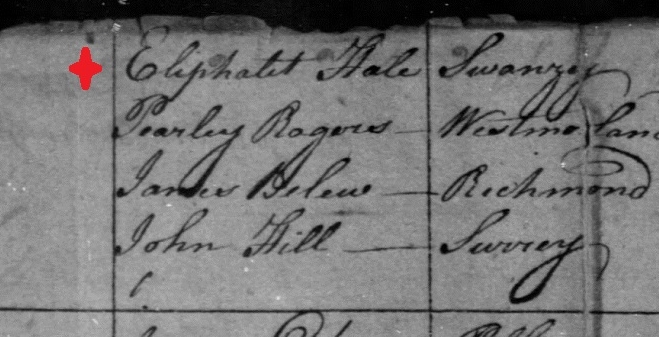 Eliphalet Hale Swanzey
Pearley Rogers — Westmorland
James Belew — Richmond
John Hill — Surrey